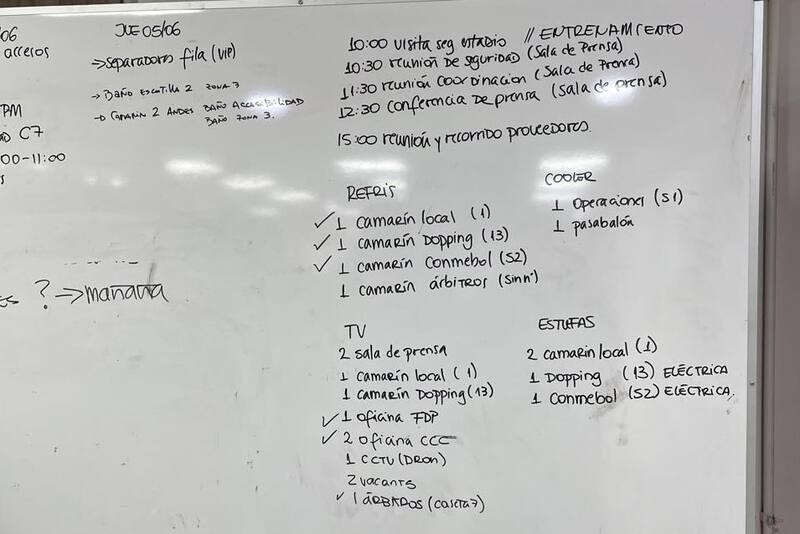 /06
accesos
PM
C7
00-11:00
? → mañana
JUE 05/06
→ separadores fila (VIP)
→ BAÑO ESCOTILLA 2 ZONA 3
→ CAMARIN 2 ANDES BAÑO ACCESIBILIDAD
BAÑO ZONA 3.
10:00 visita seg estadio // ENTRENAMIENTO
10:30 reunión de seguridad (Sala de Prensa)
11:30 reunión coordinacion (Sala de Prensa)
12:30 conferencia de prensa (sala de prensa)
15:00 reunión y recorrido proveedores.
REFRIS
✓ 1 camarín local (1)
✓ 1 camarín Dopping (13)
✓ 1 camarín Conmebol (S2)
1 camarín árbitros (sin n°)
COOLER
1 operaciones (S1)
1 pasabalón
TV
2 sala de prensa
1 camarín local (1)
1 camarín Dopping (13)
✓ 1 oficina FDP
✓ 2 oficina CCC
1 CCTV (DRON)
2 vacants
✓ 1 ÁRBADOS (caseta 7)
ESTUFAS
2 camarin local (1)
1 Dopping (13) ELÉCTRICA
1 Conmebol (S2) ELÉCTRICA.